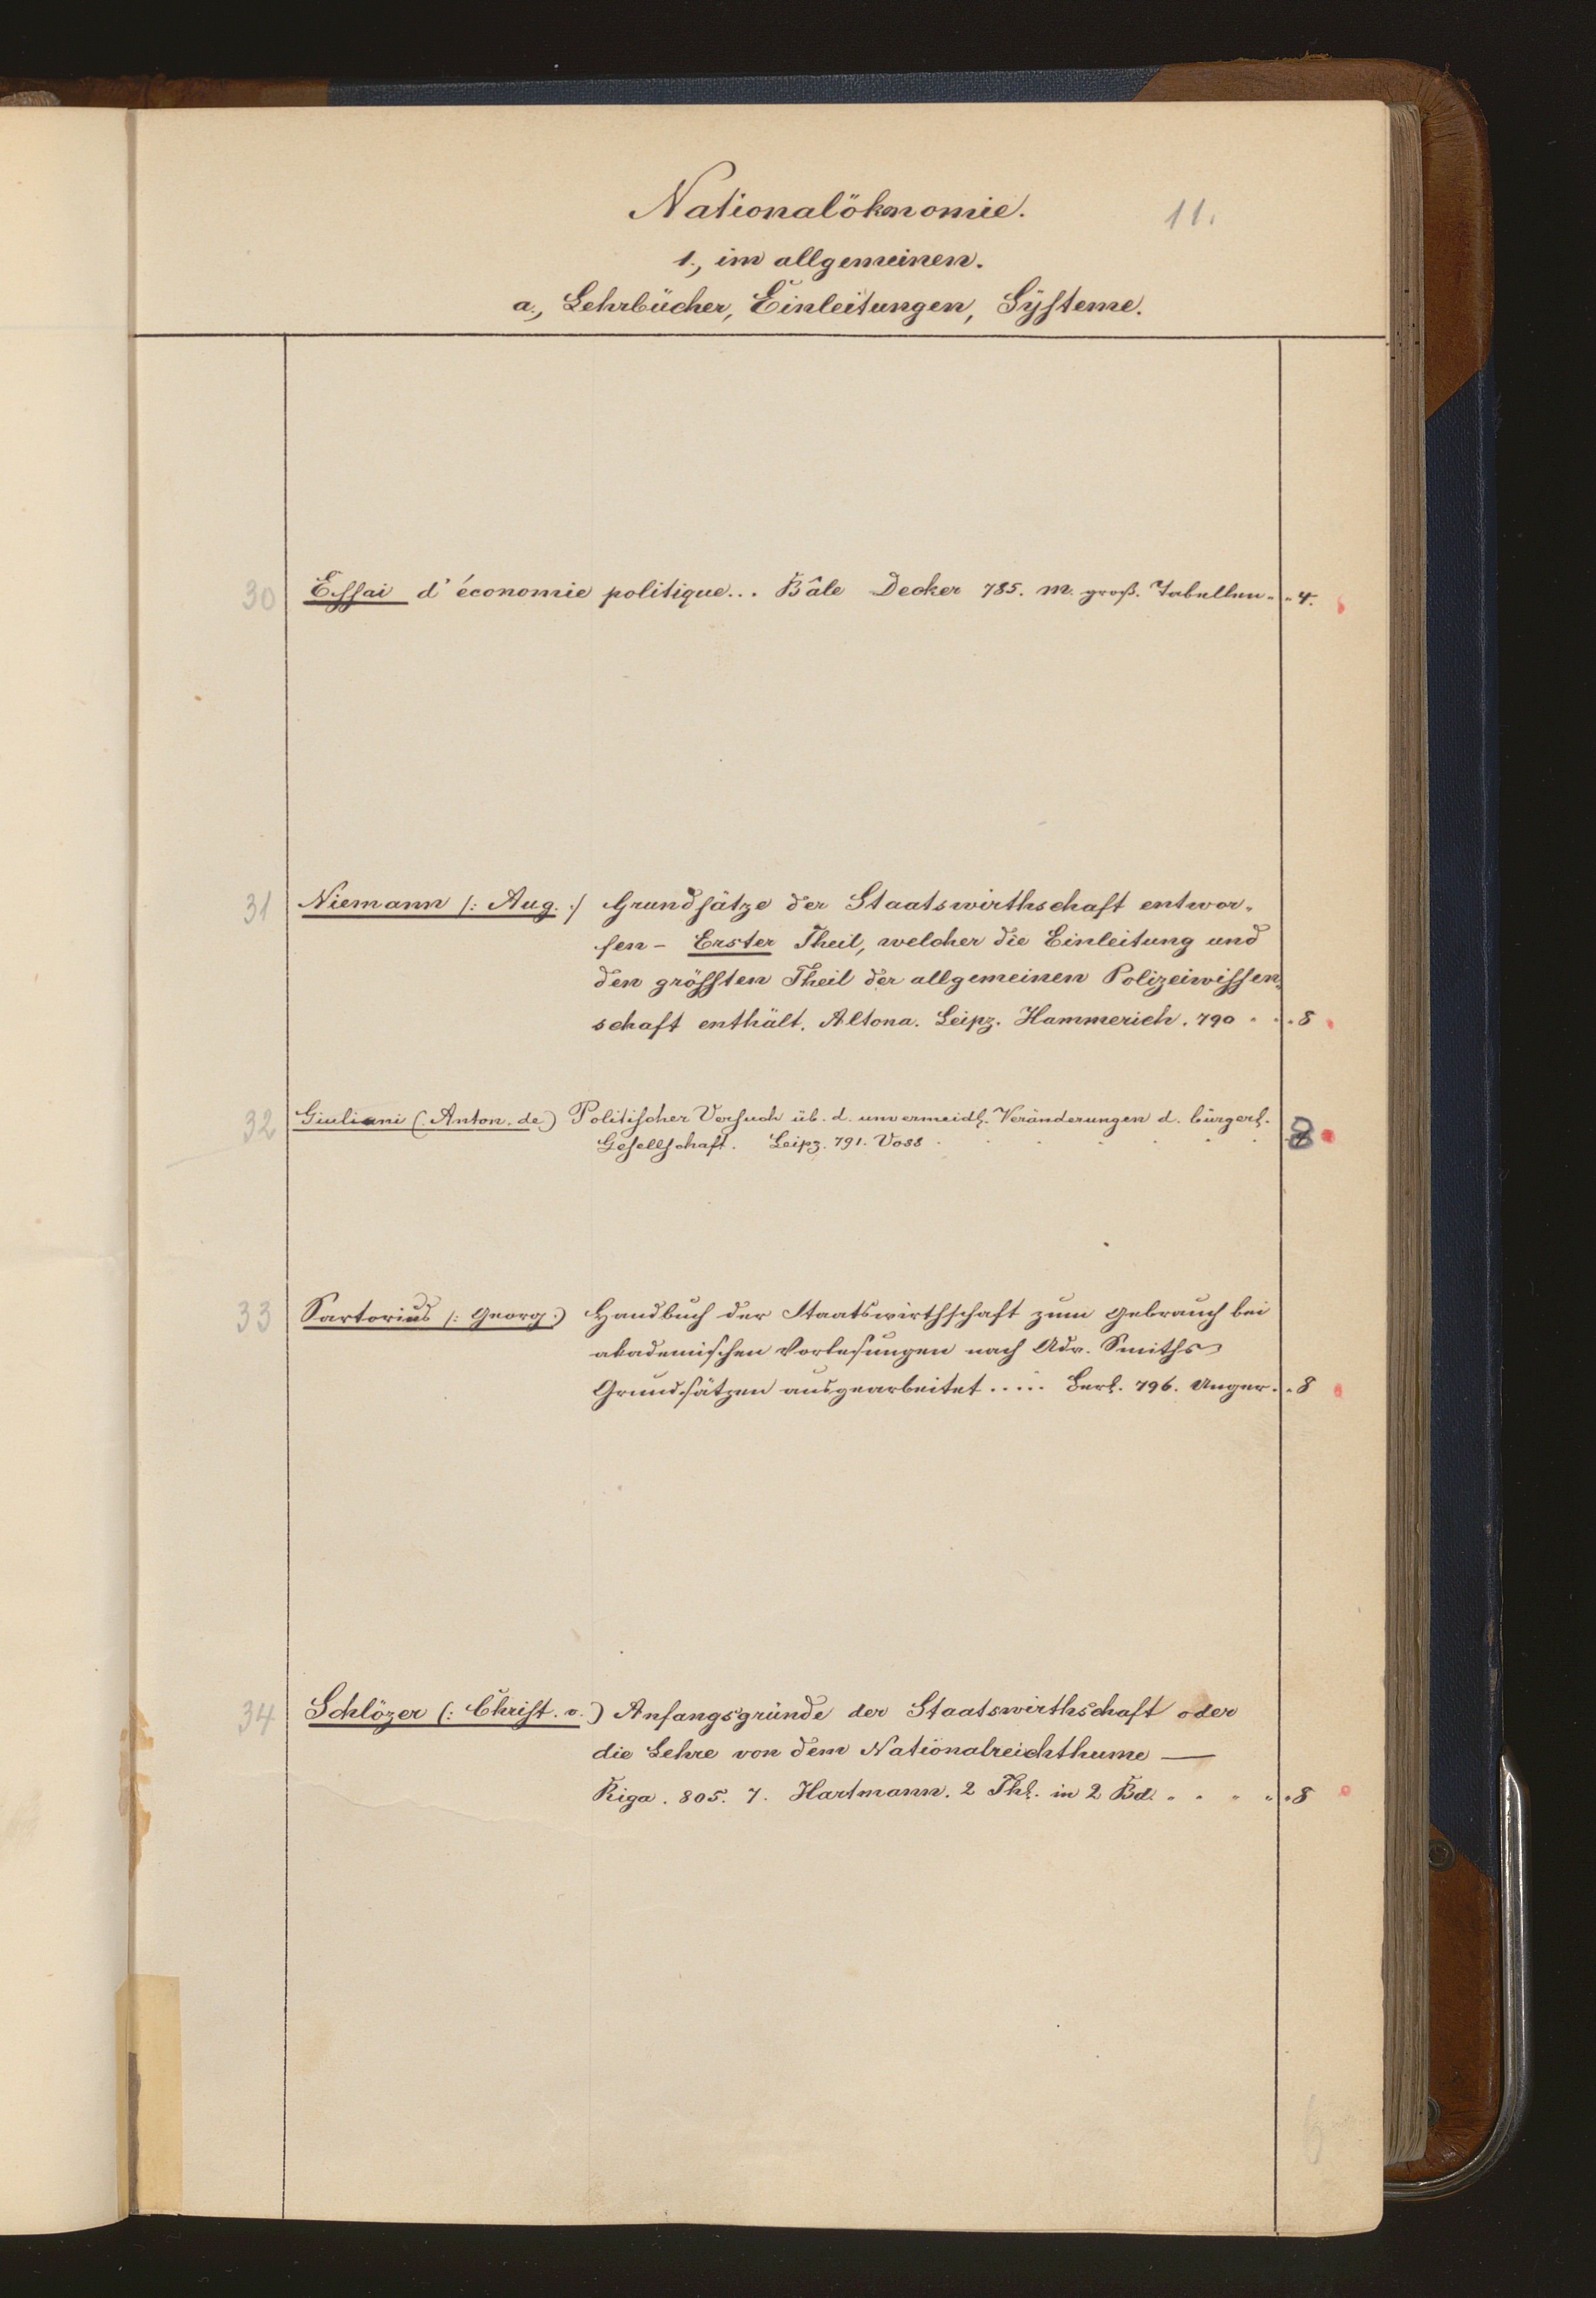 Nationalöknomie. 11.
1., im allgemeinen.
a., Lehrbücher, Einleitungen, Systeme.
30 Essai d'économie politique... Bâle Decker 785. m. groß. Tabellen. 4.
31 Niemann /: Aug. :/ Grundsätze der Staatswirthschaft entwor-
fen - Erster Theil, welcher die Einleitung und
den grössten Theil der allgemeinen Polizeiwissen-
schaft enthält. Altona. Leipz. Hammerich. 790 . . 8
32 Giuliani (. Anton. de) Politischer Versuch üb. d. unvermeidl. Veränderungen d. bürgerl.
Gesellschaft. Leipz. 791. Voss . . . . . 8
33 Sartorius /: Georg :) Handbuch der Staatswirthschaft zum Gebrauch bei
akademischen Vorlesungen nach Adr. Smiths
Grundsätzen ausgearbeitet ..... Berl. 796. Unger. . 8
34 Schlözer (: Christ. v. :) Anfangsgründe der Staatswirthschaft oder
die Lehre von dem Nationalreichthume —
Riga. 805. 7. Hartmann. 2 Thl. in 2 Bd. . . . . 8
6